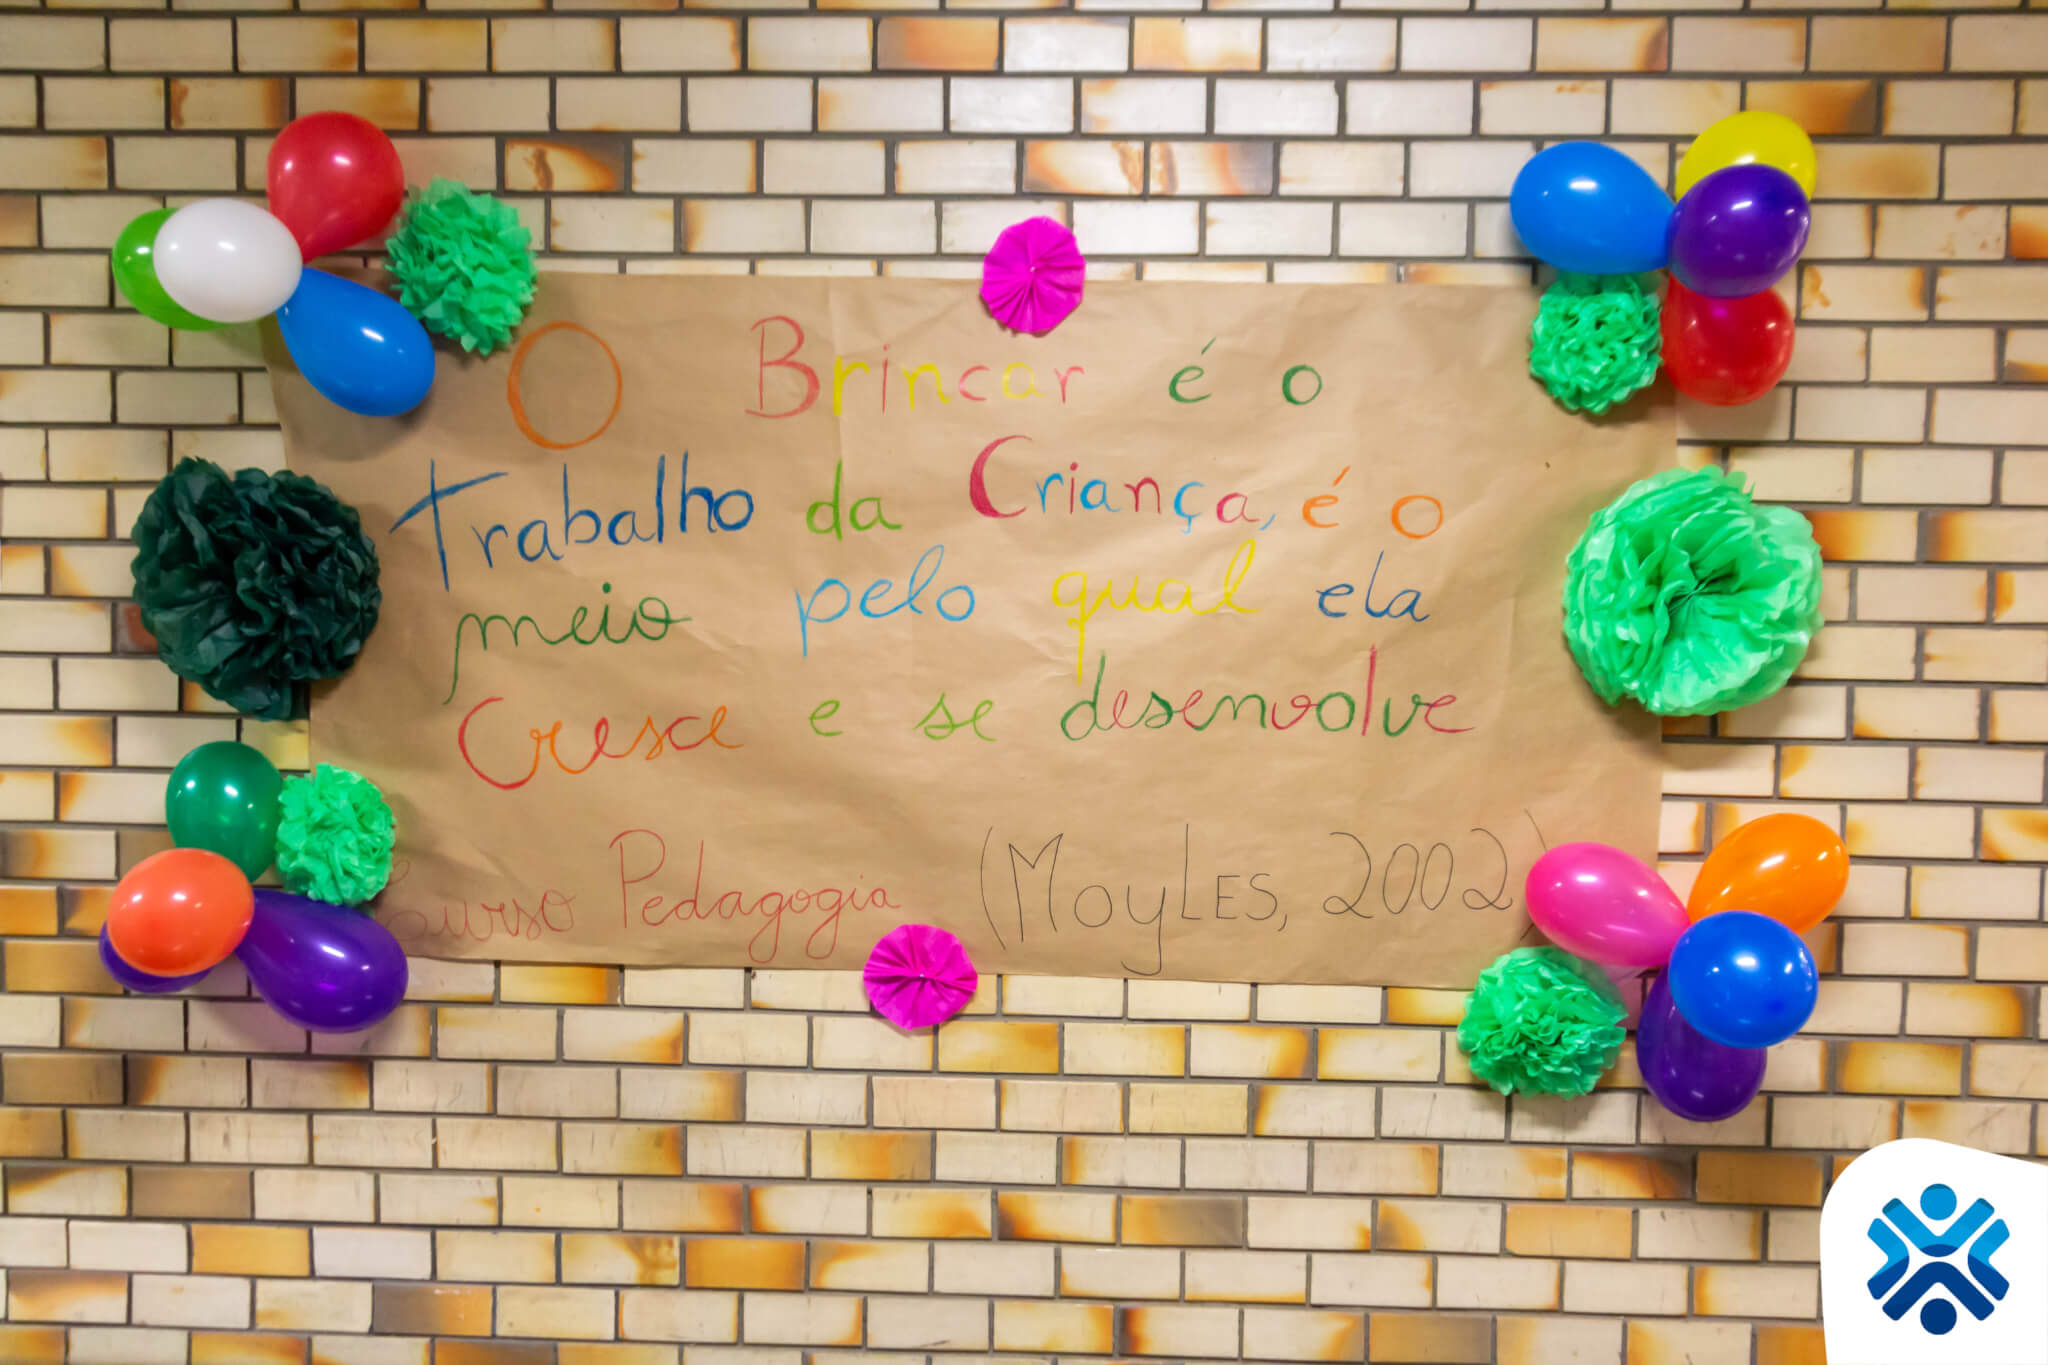 O Brincar é o
Trabalho da Criança, é o
meio pelo qual ela
Cresce e se desenvolve
Curso Pedagogia (MoyLES, 2002)